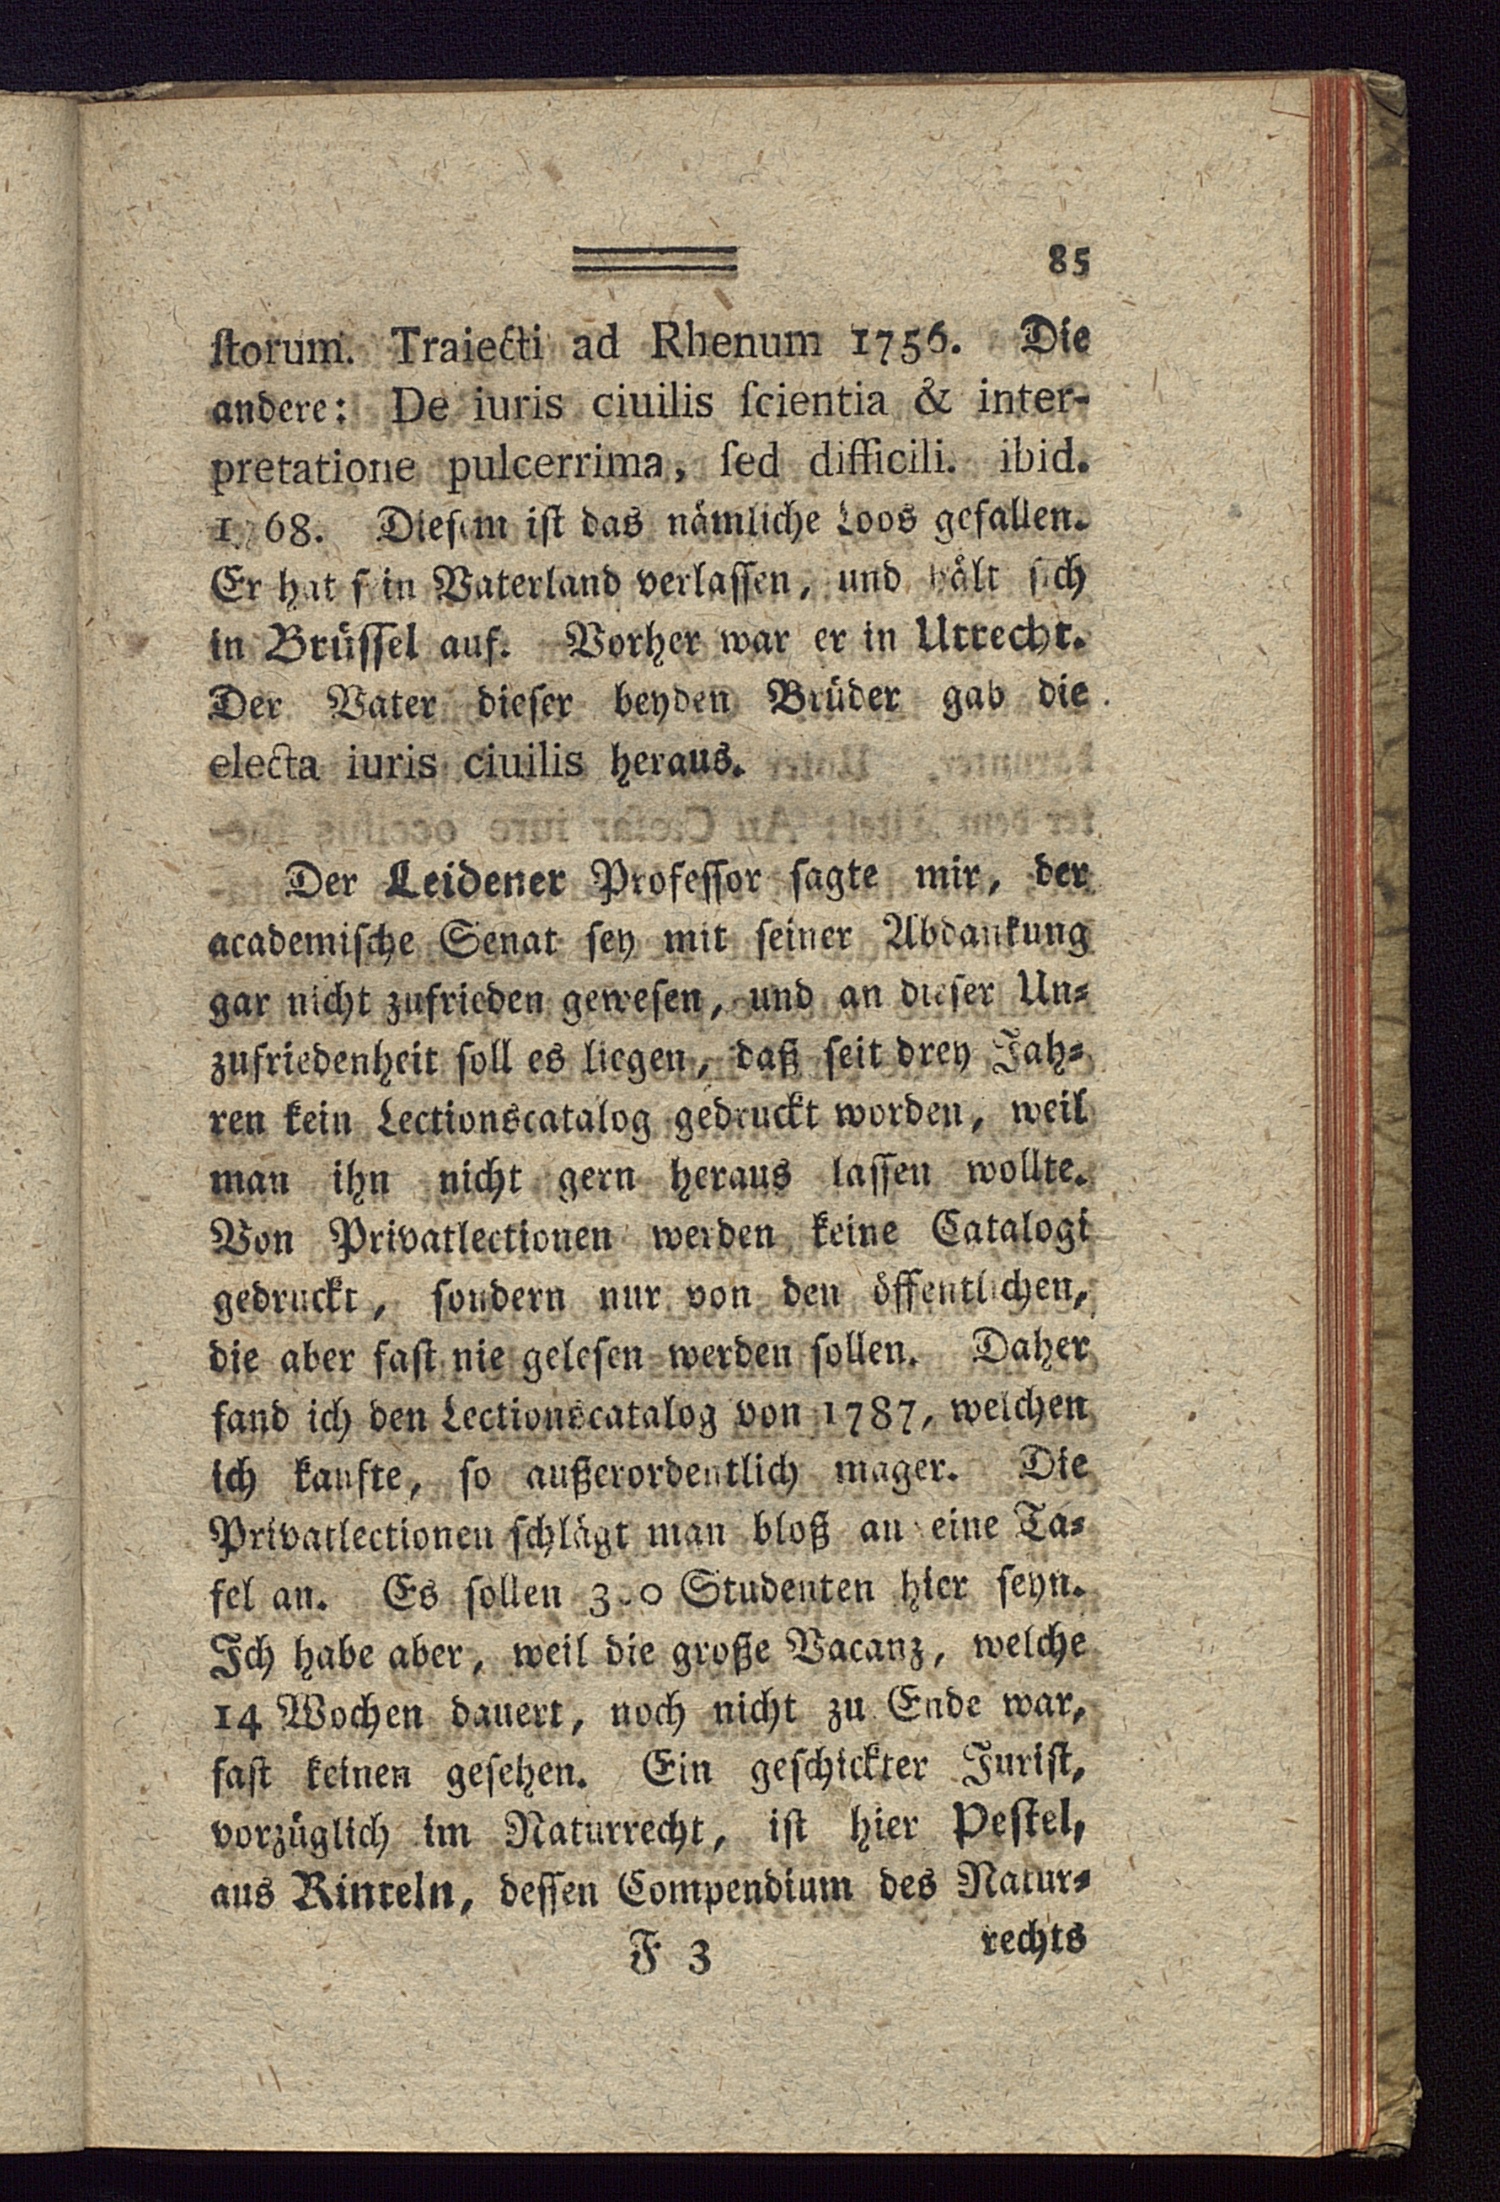 85
ſtorum. Traiecti ad Rhenum 1756. Die
andere: De iuris ciuilis ſcientia & inter-
pretatione pulcerrima, ſed difficili. ibid.
1768. Dieſem iſt das nämliche Loos gefallen.
Er hat ſein Vaterland verlaſſen, und hält ſich
in Brüſſel auf. Vorher war er in Utrecht.
Der Vater dieſer beyden Brüder gab die
electa iuris ciuilis heraus.
Der Leidener Profeſſor ſagte mir, der
academiſche Senat ſey mit ſeiner Abdankung
gar nicht zufrieden geweſen, und an dieſer Un⸗
zufriedenheit ſoll es liegen, daß ſeit drey Jah⸗
ren kein Lectionscatalog gedruckt worden, weil
man ihn nicht gern heraus laſſen wollte.
Von Privatlectionen werden keine Catalogi
gedruckt, ſondern nur von den öffentlichen,
die aber faſt nie geleſen werden ſollen. Daher
fand ich den Lectionscatalog von 1787, welchen
ich kaufte, ſo außerordentlich mager. Die
Privatlectionen ſchlägt man bloß an eine Ta⸗
fel an. Es ſollen Studenten hier ſeyn.
Ich habe aber, weil die große Vacanz, welche
14 Wochen dauert, noch nicht zu Ende war,
faſt keinen geſehen. Ein geſchickter Juriſt,
vorzüglich im Naturrecht, iſt hier Peſtel,
aus Rinteln, deſſen Compendium des Natur⸗
F 3 rechts